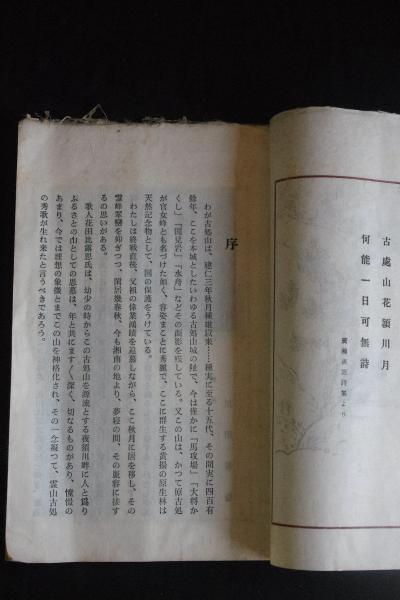 古處山花潁川月
何能一日可無詩
廣瀬淡窓詩集より
序
わが古処山は、建仁三年秋月種雄以来……種実に至る十五代、その間実に四百有
余年、ここを本城としたいわゆる古処山城の址で、今は僅かに「馬攻場」「大将か
くし」「国見岩」「水舟」などその面影を残している。又この山は、かつて原古処
が官女峰とも名づけた如く、容姿まことに秀麗で、ここに群生する黄揚の原生林は
天然記念物として、国の保護をうけている。
わたしは終戦直後、父祖の偉業鴻績を追慕しながら、ここ秋月に居を移し、その
霊峰翠巒を仰ぎつつ、閑居幾春秋、今も湘南の地より、夢寝の間、その麗容に接す
るの思いがある。
歌人花田比露思氏は、幼少の時からこの古処山を源流とする夜須川畔に人と為り
ふるさとの山としての思慕は、年と共にます〱深く、切なるものがあり、憧憬の
あまり、今では理想の象徴とまでこの山を神格化され、その一念凝つて、霊山古処
の秀歌が生れ来たと言うべきであろう。